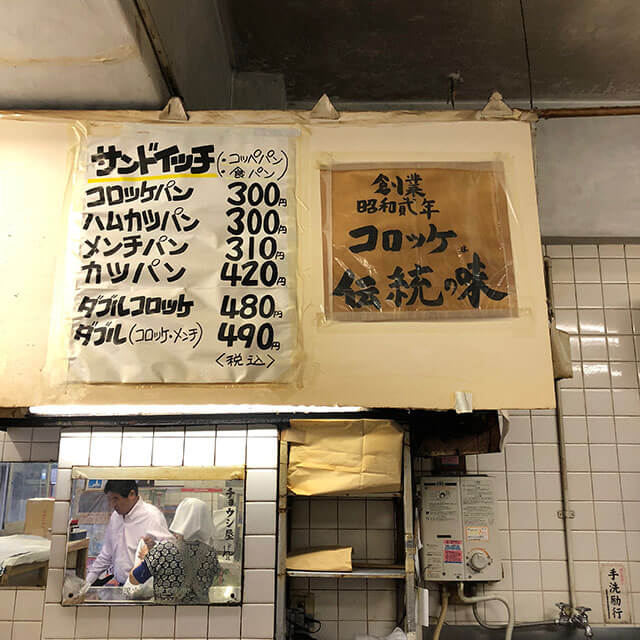 サンドイッチ(・コッペパン
・食パン)
コロッケパン 300円
ハムカツパン 300円
メンチパン 310円
カツパン 420円
ダブルコロッケ 480円
ダブル(コロッケ・メンチ) 490円
〈税込〉
創業
昭和貳年
コロッケは
伝統の味
チョウシ屋
手洗励行